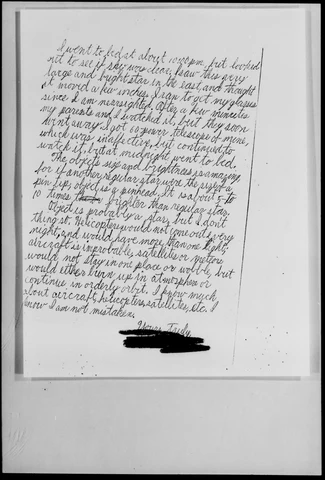 I went to bed at about 10:00 pm, but looked
out to see if sky was clear, I saw this very
large and bright star in the east, and thought
it moved a few inches. I ran to get my glasses
since I am nearsighted. After a few minutes
my parents and I watched it, but they soon
went away. I got 60 power telescope of mine,
which was ineffective, but continued to
watch it, but at midnight went to bed.
The objects size and brightness is amazing,
for if another regular star were the size of a
pin tip, object is a pinhead. It is about 5 to
10 times brighter than regular star.
Object is probably a star, but I don't
think so. Helicopters would not come out every
night, and would have more than one light.
aircraft is improbable, satellites or meteors
would not stay in one place or wobble, but
would either burn up in atmosphere or
continue in orderly orbit. I know much
about aircraft, helicopters, satellites, etc. I
know I am not mistaken.
Yours Truly,